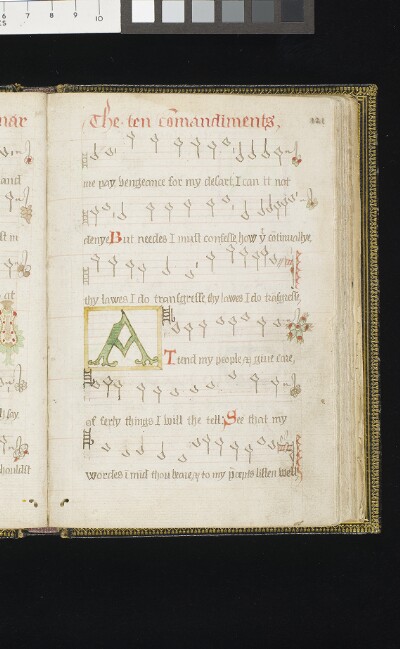 6 7 8 9 10
nar
The ten comandiments,
121
and
me pay vengeance for my desart, I can it not
st in
denye But needes I must confesse how ẏ cōtinuallye
thy lawes I do transgresse thy lawes I do trāsgress,
at
A
Ttend my people & giue eare,
of ferly things I will the tell, See that my
ll say
wordes ī mīd thou beare, & to my p̄cepts listen well
shouldst